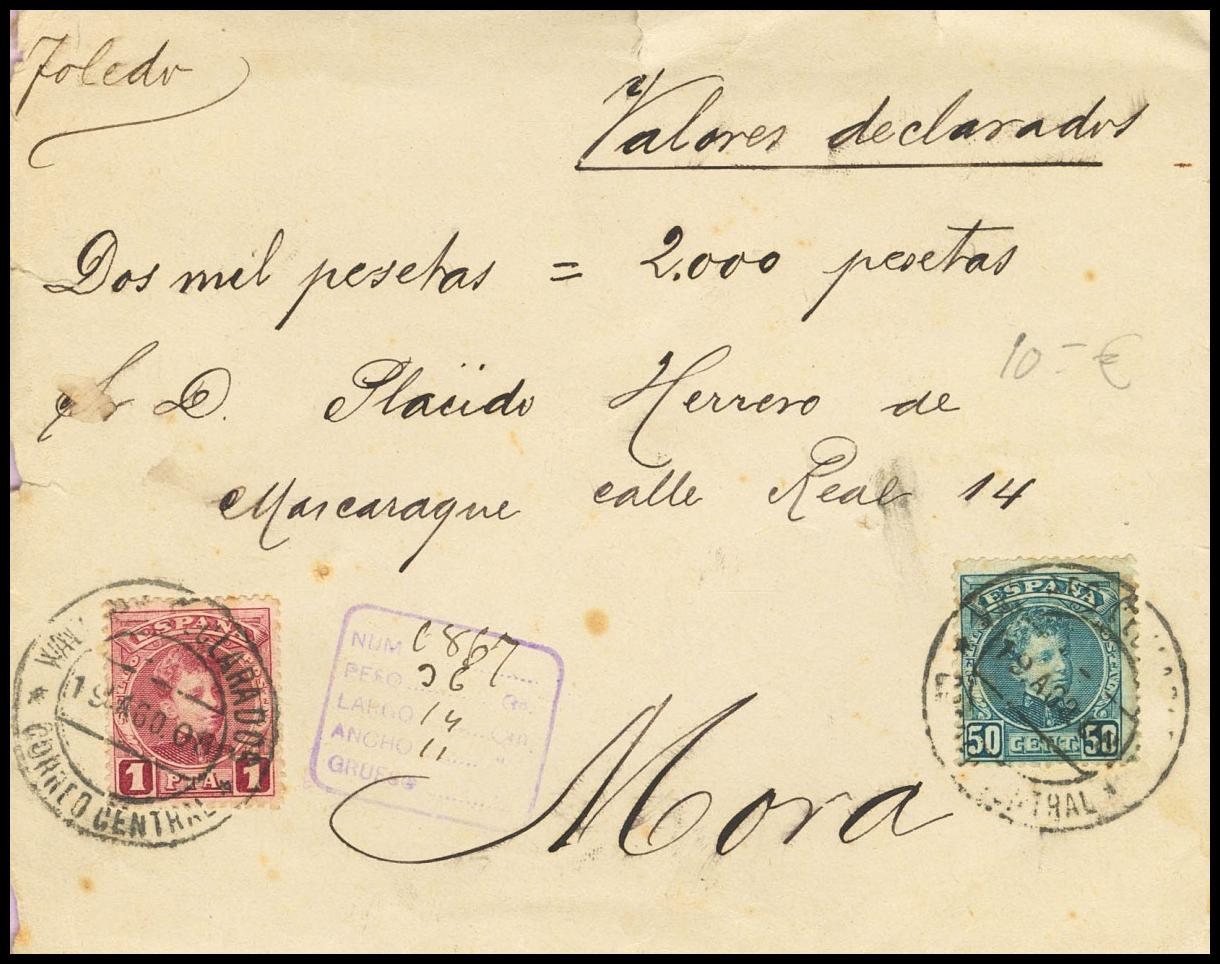 Toledo
Valores declarados
Dos mil pesetas = 2.000 pesetas
Sr D. Plácido Herrero de
10 - €
Mascaraque calle Real 14
Mora
ESPAÑA
1 PTA 1
DECLARADOS
19 AGO
CORREO CENTRAL
NUM
PESO Gr.
LARGO 14 Cm.
ANCHO 11 "
GRUESO
ESPAÑA
50 CENT 50